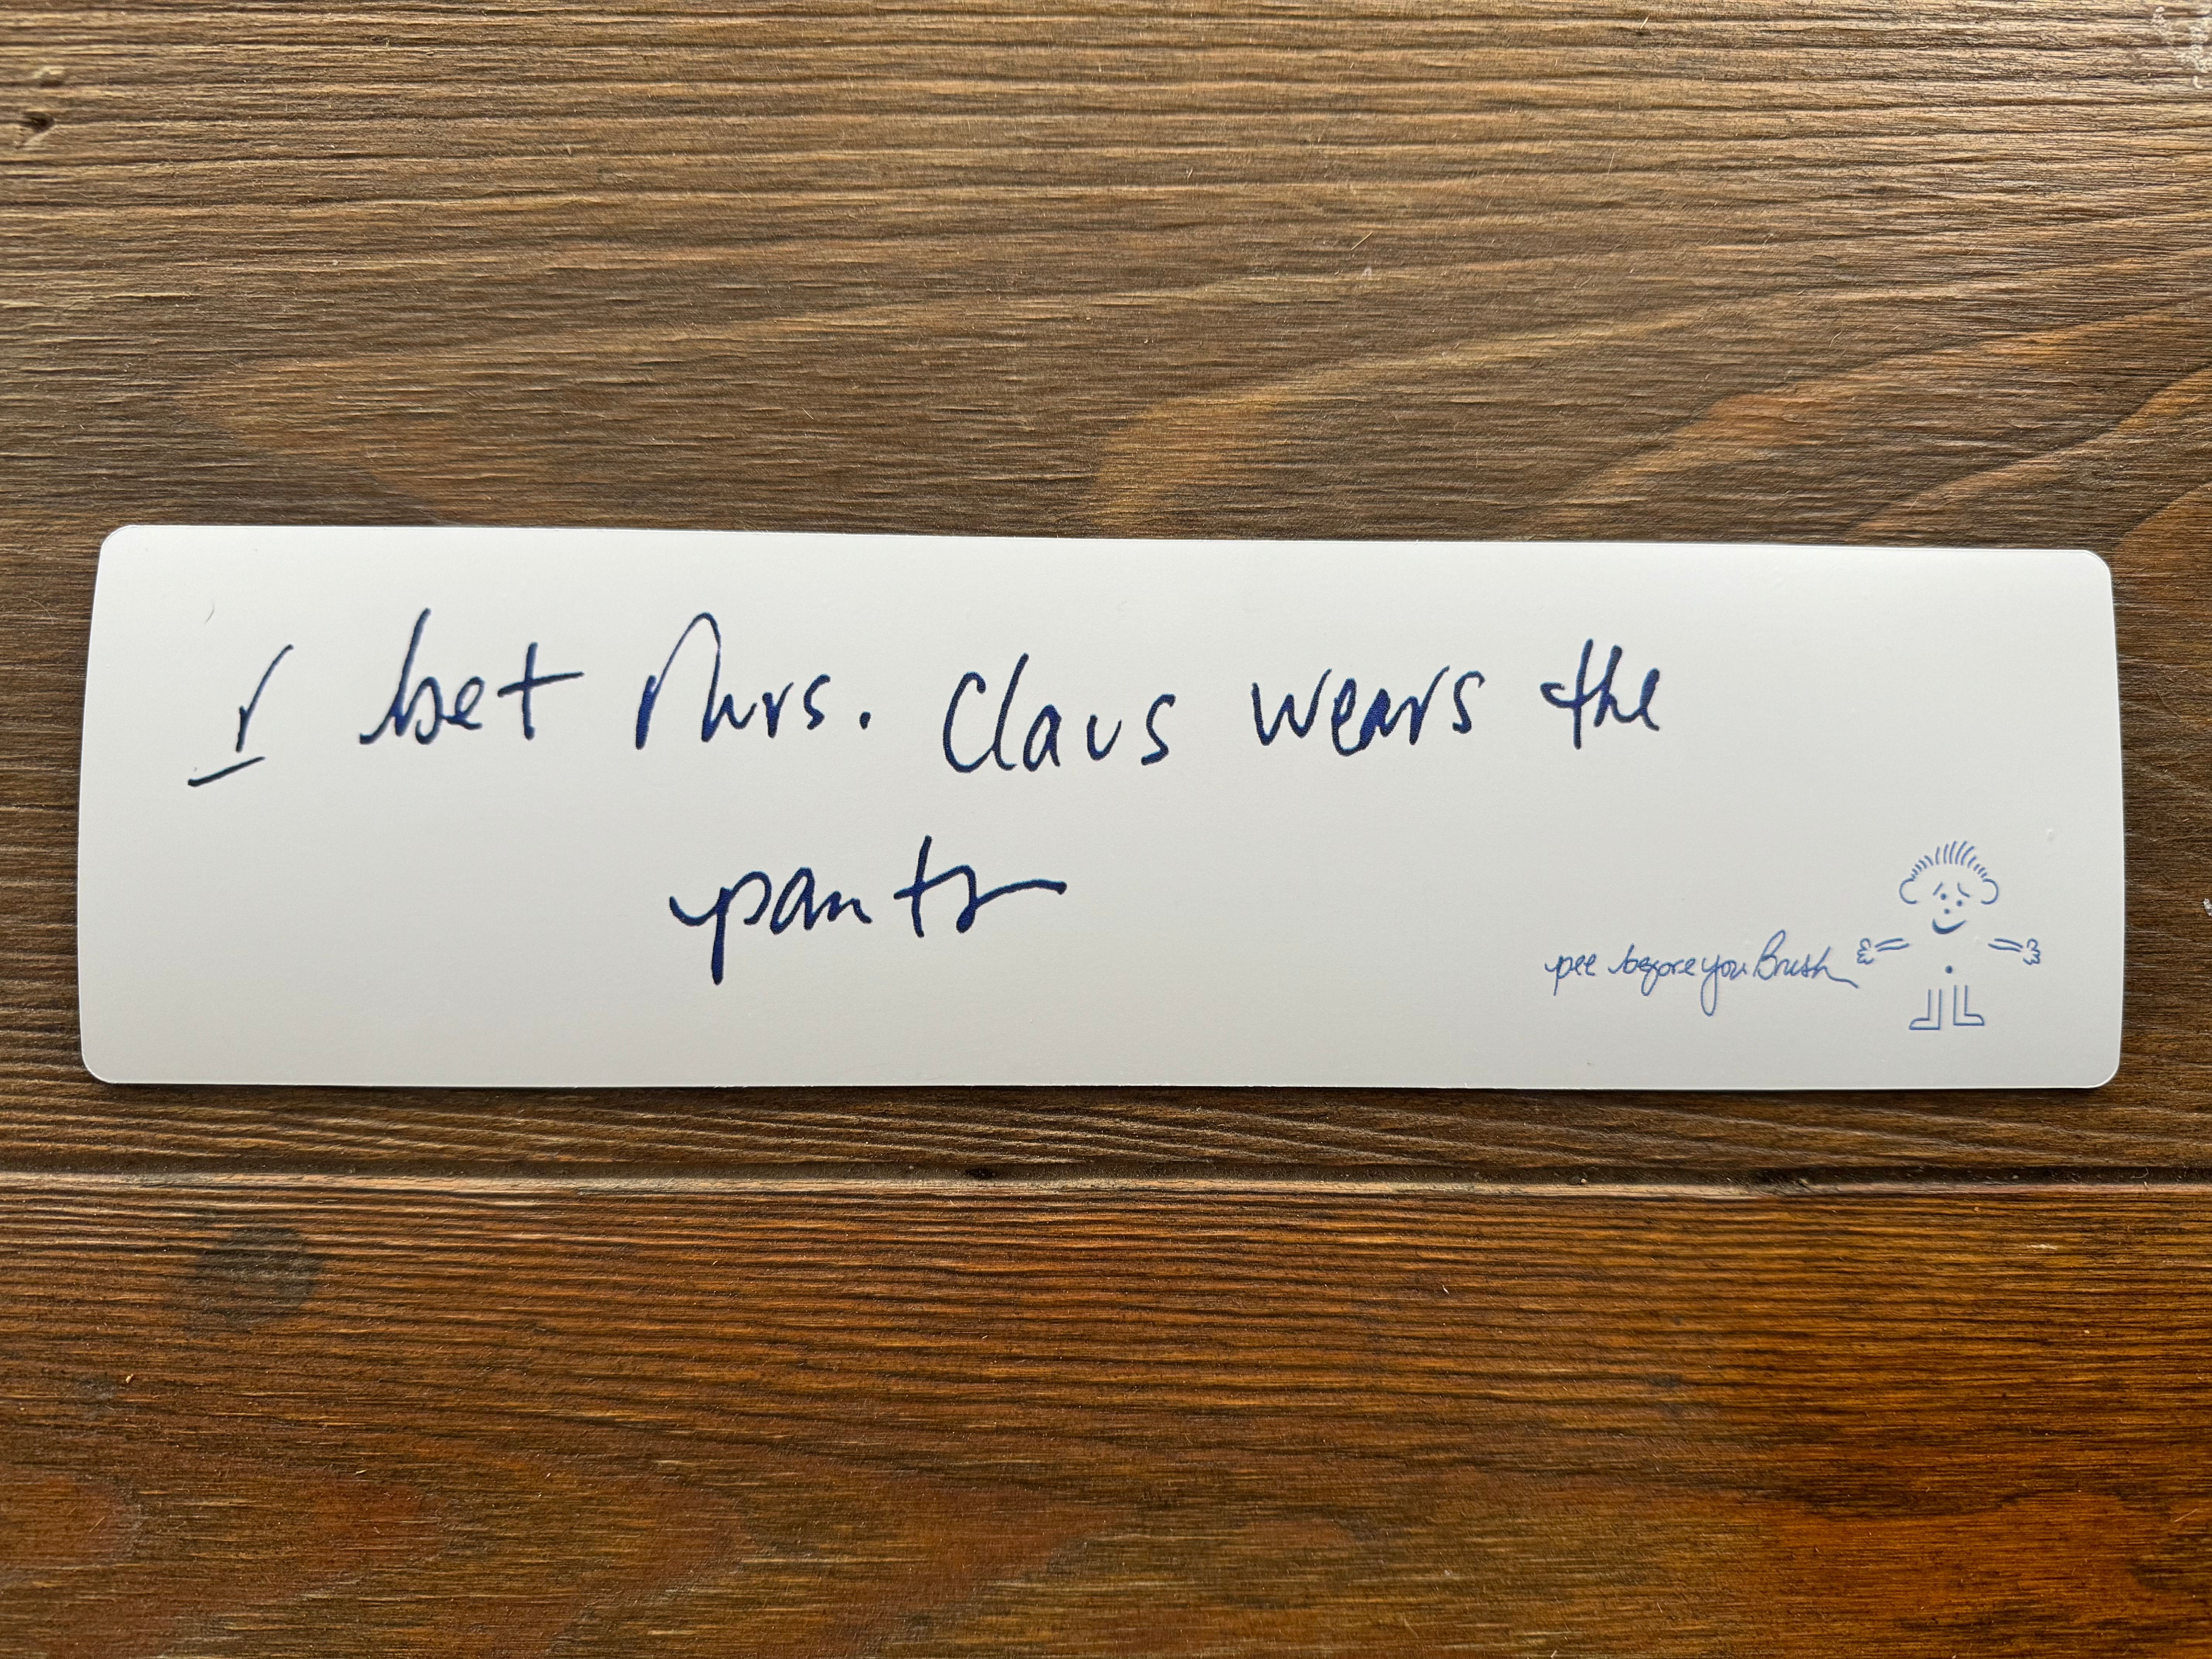 I bet Mrs. Claus wears the
pants
pee before you Brush